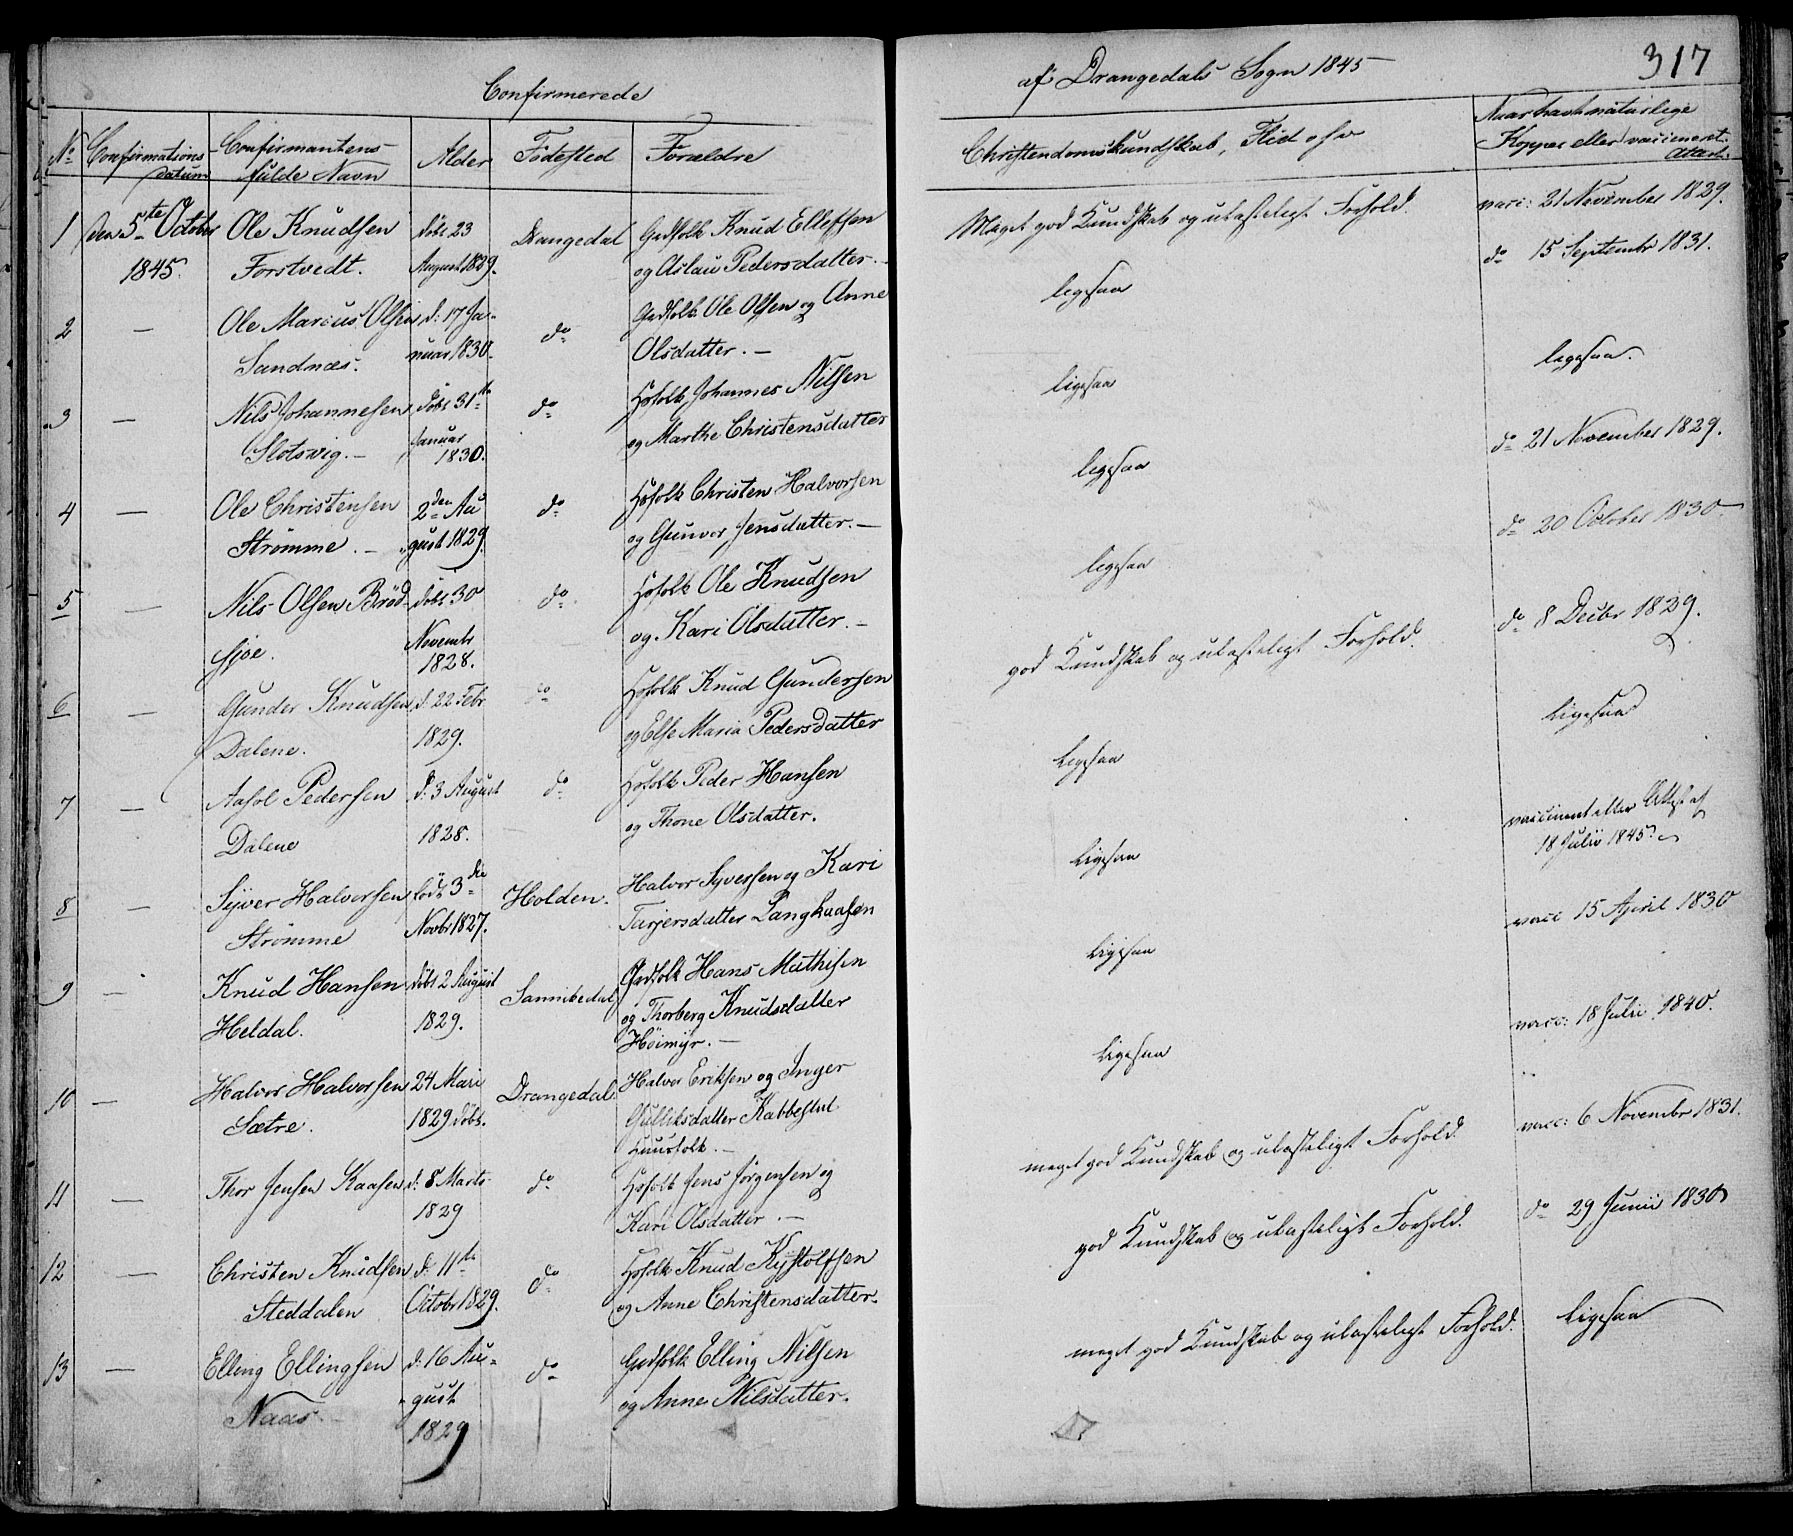 Confirmerede
No
Confirmations
datum
Confirmantens
fulde Navn
Alder
Födested
Forældre
1
den 5te October
1845.
Ole Knudsen
Forstvedt.
döbt 23
August 1829.
Drangedal
Gudfolk Knud Ellefsen
og Aslau Pedersdatter.
2
—
Ole Marius Olsen
Sandnæs.
d: 17 Ja-
nuar 1830.
do
Gudfolk Ole Olsen og Anne
Olsdatter. —
3
—
Nils Johannesen
Slotsvig. —
döbt 31te
Januar
1830.
do
Hosfolk Johannes Nilsen
og Marthe Christensdatter
4
—
Ole Christensen
Strømme. —
2den Au
gust 1829.
do
Hosfolk Christen Halvorsen
og Gunvor Jensdatter. —
5
—
Nils Olsen Bröd-
sjøe.
döbt 30
Novembr
1828.
do
Hosfolk Ole Knudsen
og Kari Olsdatter. —
6
—
Gunder Knudsen
Dalene.
d. 22 Febr
1829.
do
Hosfolk Knud Gundersen
og Else Maria Pedersdatter
7
—
Aasol Pedersen
Dalene
d: 3 August
1828.
do
Hosfolk Peder Hansen
og Thone Olsdatter.
8
—
Syver Halvorsen
Strømme
födt 3die
Novbr 1827.
Holden.
Halvor Syversen og Kari
Tarjersdatter Langkaasen
9
—
Knud Hansen
Heldal.
döbt 2 August
1829.
Sannikedal
Gudfolk Hans Mathisen
og Thorberg Knudsdatter
Höimyr. —
10
—
Halvor Halvorsen
Sætre.
24 Mai
1829 döbt.
Drangedal
Halvor Eriksen og Inger
Gulliksdatter Kabbestul
Huusfolk. —
11
—
Thor Jensen Kaasen
d: 8 Marts
1829
do
Hosfolk Jens Jörgensen og
Kari Olsdatter. —
12
—
Christen Knudsen
Steddalen
d: 11te
Octobr 1829.
do
Hosfolk Knud Kystolfsen
og Anne Christensdatter.
13
—
Elling Ellingsen
Naas
d: 16 Au-
gust
1829
do
Gudfolk Elling Nilsen
og Anne Nilsdatter.
af Drangedals Sogn 1845
317
Christendomskundskab, Flid osv
Naar havt naturlige
Kopper eller vaccineret
Attest.
Meget god Kundskab og ulasteligt Forhold.
vacc: 21 November 1829.
ligesaa
do 15 Septembr 1831.
ligesaa
ligesaa.
ligesaa
do 21 November 1829.
ligesaa
do 20 October 1830
god Kundskab og ulasteligt Forhold.
do 8 Decbr 1829.
Ligesaa
Ligesaa
Ligesaa
vaccineret efter Attest af
18 Julii 1845.
Ligesaa
vacc 15 April 1830
Ligesaa
vacc: 18 Julii 1840.
meget god Kundskab og ulasteligt Forhold.
vacc: 6 Novembr 1831.
god Kundskab og ulasteligt Forhold.
do 29 Junii 1830
meget god Kundskab og ulasteligt Forhold.
Ligesaa